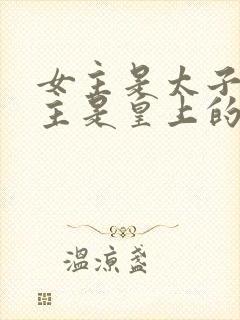 女主是太子
主是皇上的
温凉盏